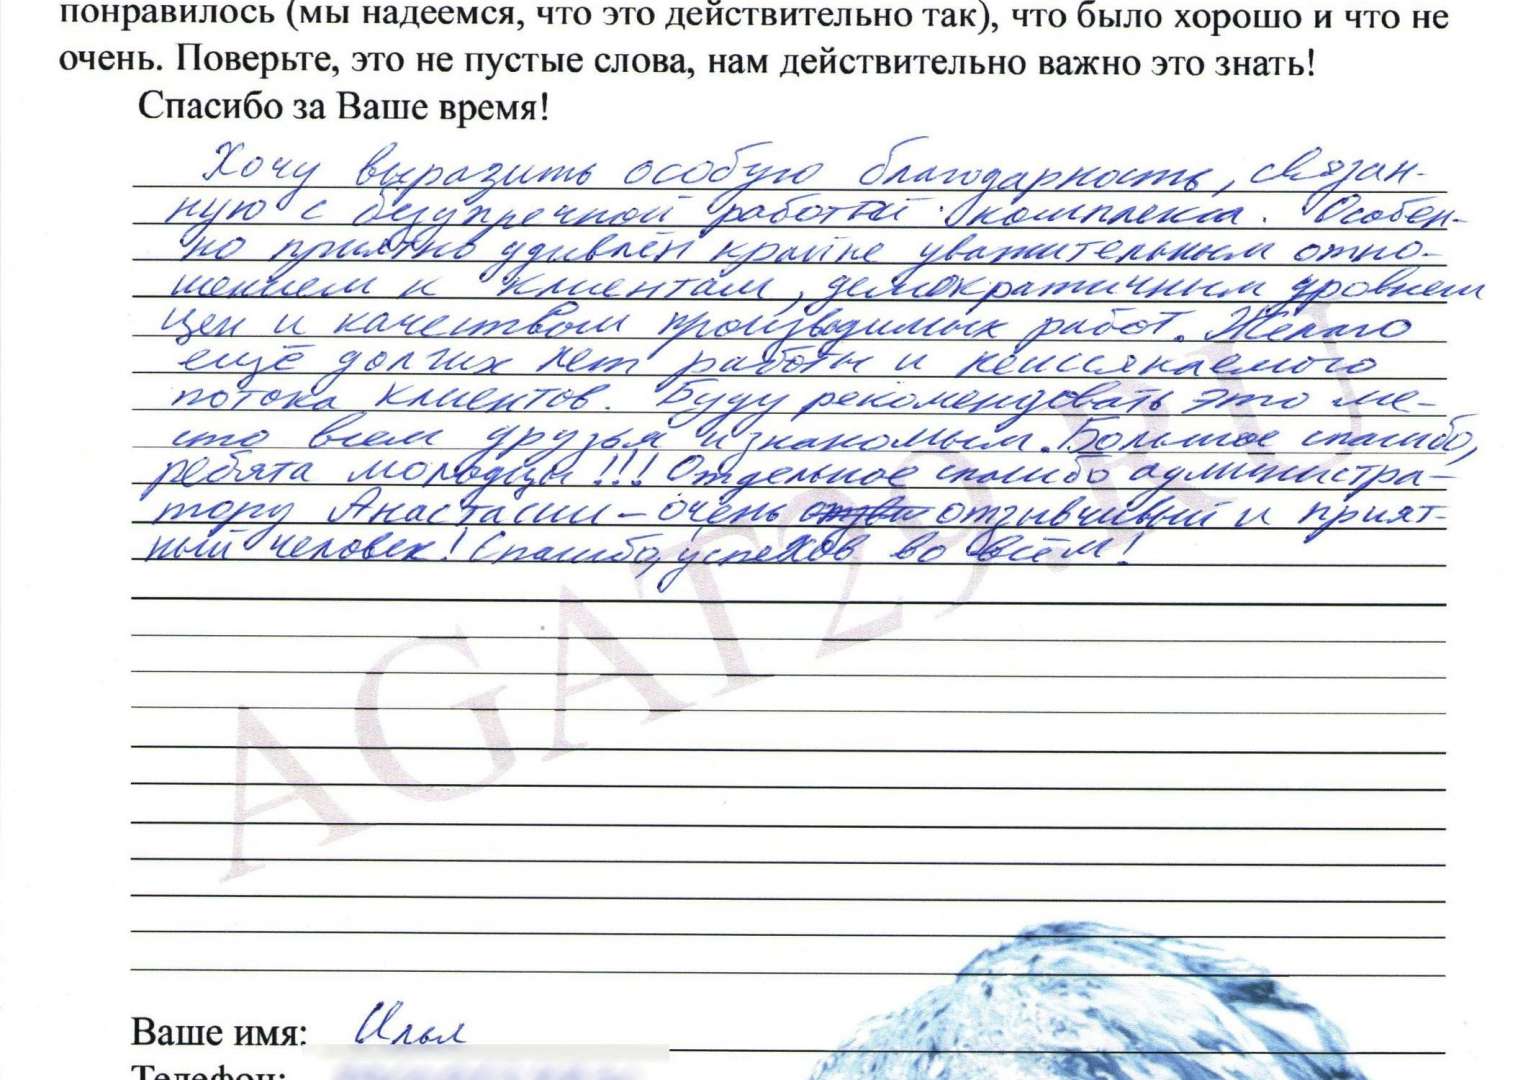 понравилось (мы надеемся, что это действительно так), что было хорошо и что не
очень. Поверьте, это не пустые слова, нам действительно важно это знать!
Спасибо за Ваше время!
Хочу выразить особую благодарность, связан-
ную с безупречной работой комплекса. Особен-
но приятно удивлён крайне уважительным отно-
шением к клиентам, демократичным уровнем
цен и качеством производимых работ. Желаю
ещё долгих лет работы и неиссякаемого
потока клиентов. Буду рекомендовать это ме-
сто всем друзья и знакомым. Большое спасибо,
ребята молодцы!!! Отдельное спасибо администра-
тору Анастасии – очень отзывчивый и прият-
ный человек! Спасибо, успехов во всём!
AGAT29.RU
Ваше имя: Илья
Телефон: